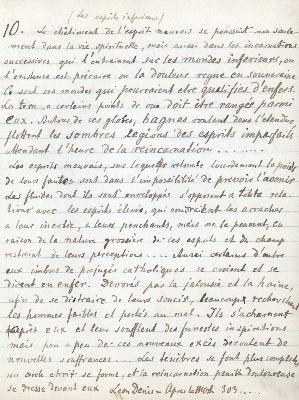 (Les esprits inférieurs)
10. Le châtiment de l'esprit mauvais se poursuit non seule-
ment dans la vie spirituelle, mais aussi dans les incarnations
successives qui l'entraînent sur les mondes inférieurs, ou
l'existence est précaire, ou la douleur regne en souveraine
Ce sont ces mondes qui pourraient être qualifiés d'enfers.
La terre, a certains points de vue doit être rangée parmi
eux. Autour de ces globes, bagnes roulant dans l'étendue,
flottent les sombres légions des esprits imparfaits
attendant l'heure de la réincarnation.......
Les esprits mauvais, sur lesquels retombe lourdement le poids
de leurs fautes sont dans l'impossibilité de prévoir l'avenir
Les fluides dont ils sont enveloppés s'opposent a toute rela-
tions avec les esprits élevés, qui voudraient les arracher
a leur inertie, a leurs penchants, mais ne le peuvent, en
raison de la nature grossière de ces esprits et du champ
restreint de leurs perceptions.... Aussi certains d'entre
eux imbus de préjugés catholiques se croient et se
disent en enfer. Dévorés par la jalousie et la haine,
afin de se distraire de leurs soucis, beaucoup recherchent
les hommes faibles et portés au mal. Ils s'acharnent
après eux et leur soufflent des funestes inspirations
mais peu a peu de ces nouveaux excès découlent de
nouvelles souffrances.... Les ténèbres se font plus complètes
un cercle étroit se forme, et la réincarnation pénible douloureuse
se dresse devant eux Léon Denis - Après la Mort 303....